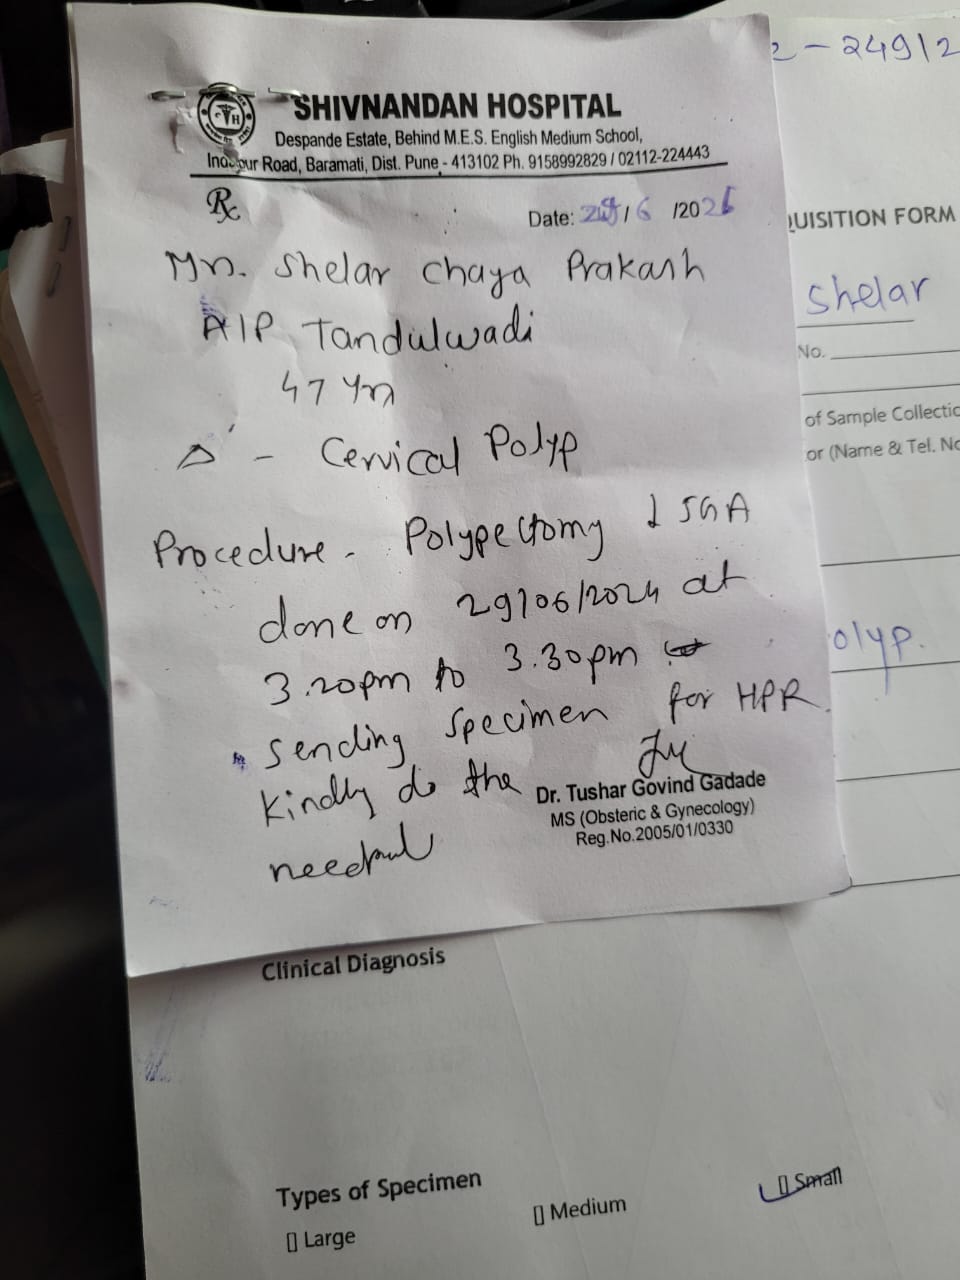 2-249/2
SHIVNANDAN HOSPITAL
Despande Estate, Behind M.E.S. English Medium School,
Indapur Road, Baramati, Dist. Pune - 413102 Ph. 9158992829 / 02112-224443
Rx
Date: /6 /202
QUISITION FORM
Mrs. Shelar Chaya Prakash
Shelar
A/P Tandulwadi
No.
47 Yrs
of Sample Collectio
or (Name & Tel. No
Δ - Cervical Polyp
Procedure - Polypectomy SGA
done on 29/06/2024 at
3.20pm to 3.30pm
olyp.
sending specimen for HPR.
kindly do the
needful
Dr. Tushar Govind Gadade
MS (Obsteric & Gynecology)
Reg.No.2005/01/0330
Clinical Diagnosis
Types of Specimen
Large
Medium
Small